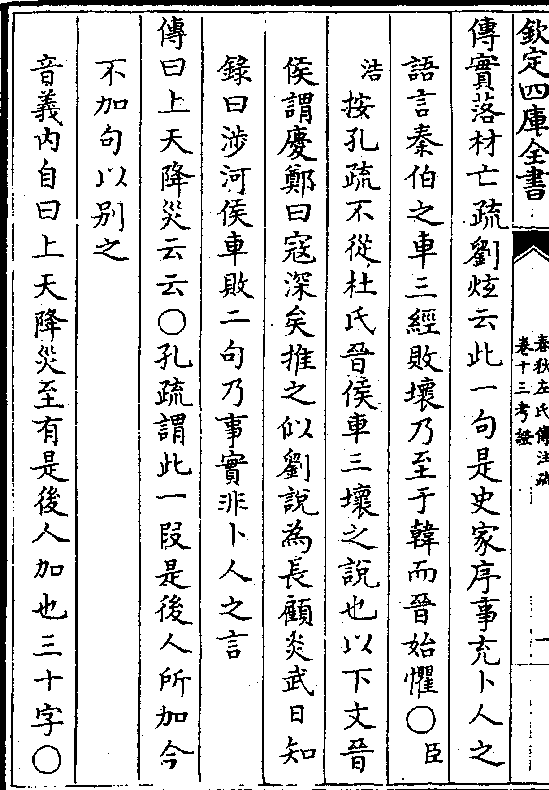 欽定四庫全書
春秋左氏傳注疏
卷十三考證
一
傳實落材亡疏劉炫云此一句是史家序事充卜人之
語言秦伯之車三經敗壞乃至于韓而晉始懼〇臣
浩按孔疏不從杜氏晉侯車三壞之說也以下文晉
侯謂慶鄭曰寇深矣推之似劉說為長顧炎武日知
錄曰涉河侯車敗二句乃事實非卜人之言
傳曰上天降災云云〇孔疏謂此一段是後人所加今
不加句以别之
音義内自曰上天降災至有是後人加也三十字〇